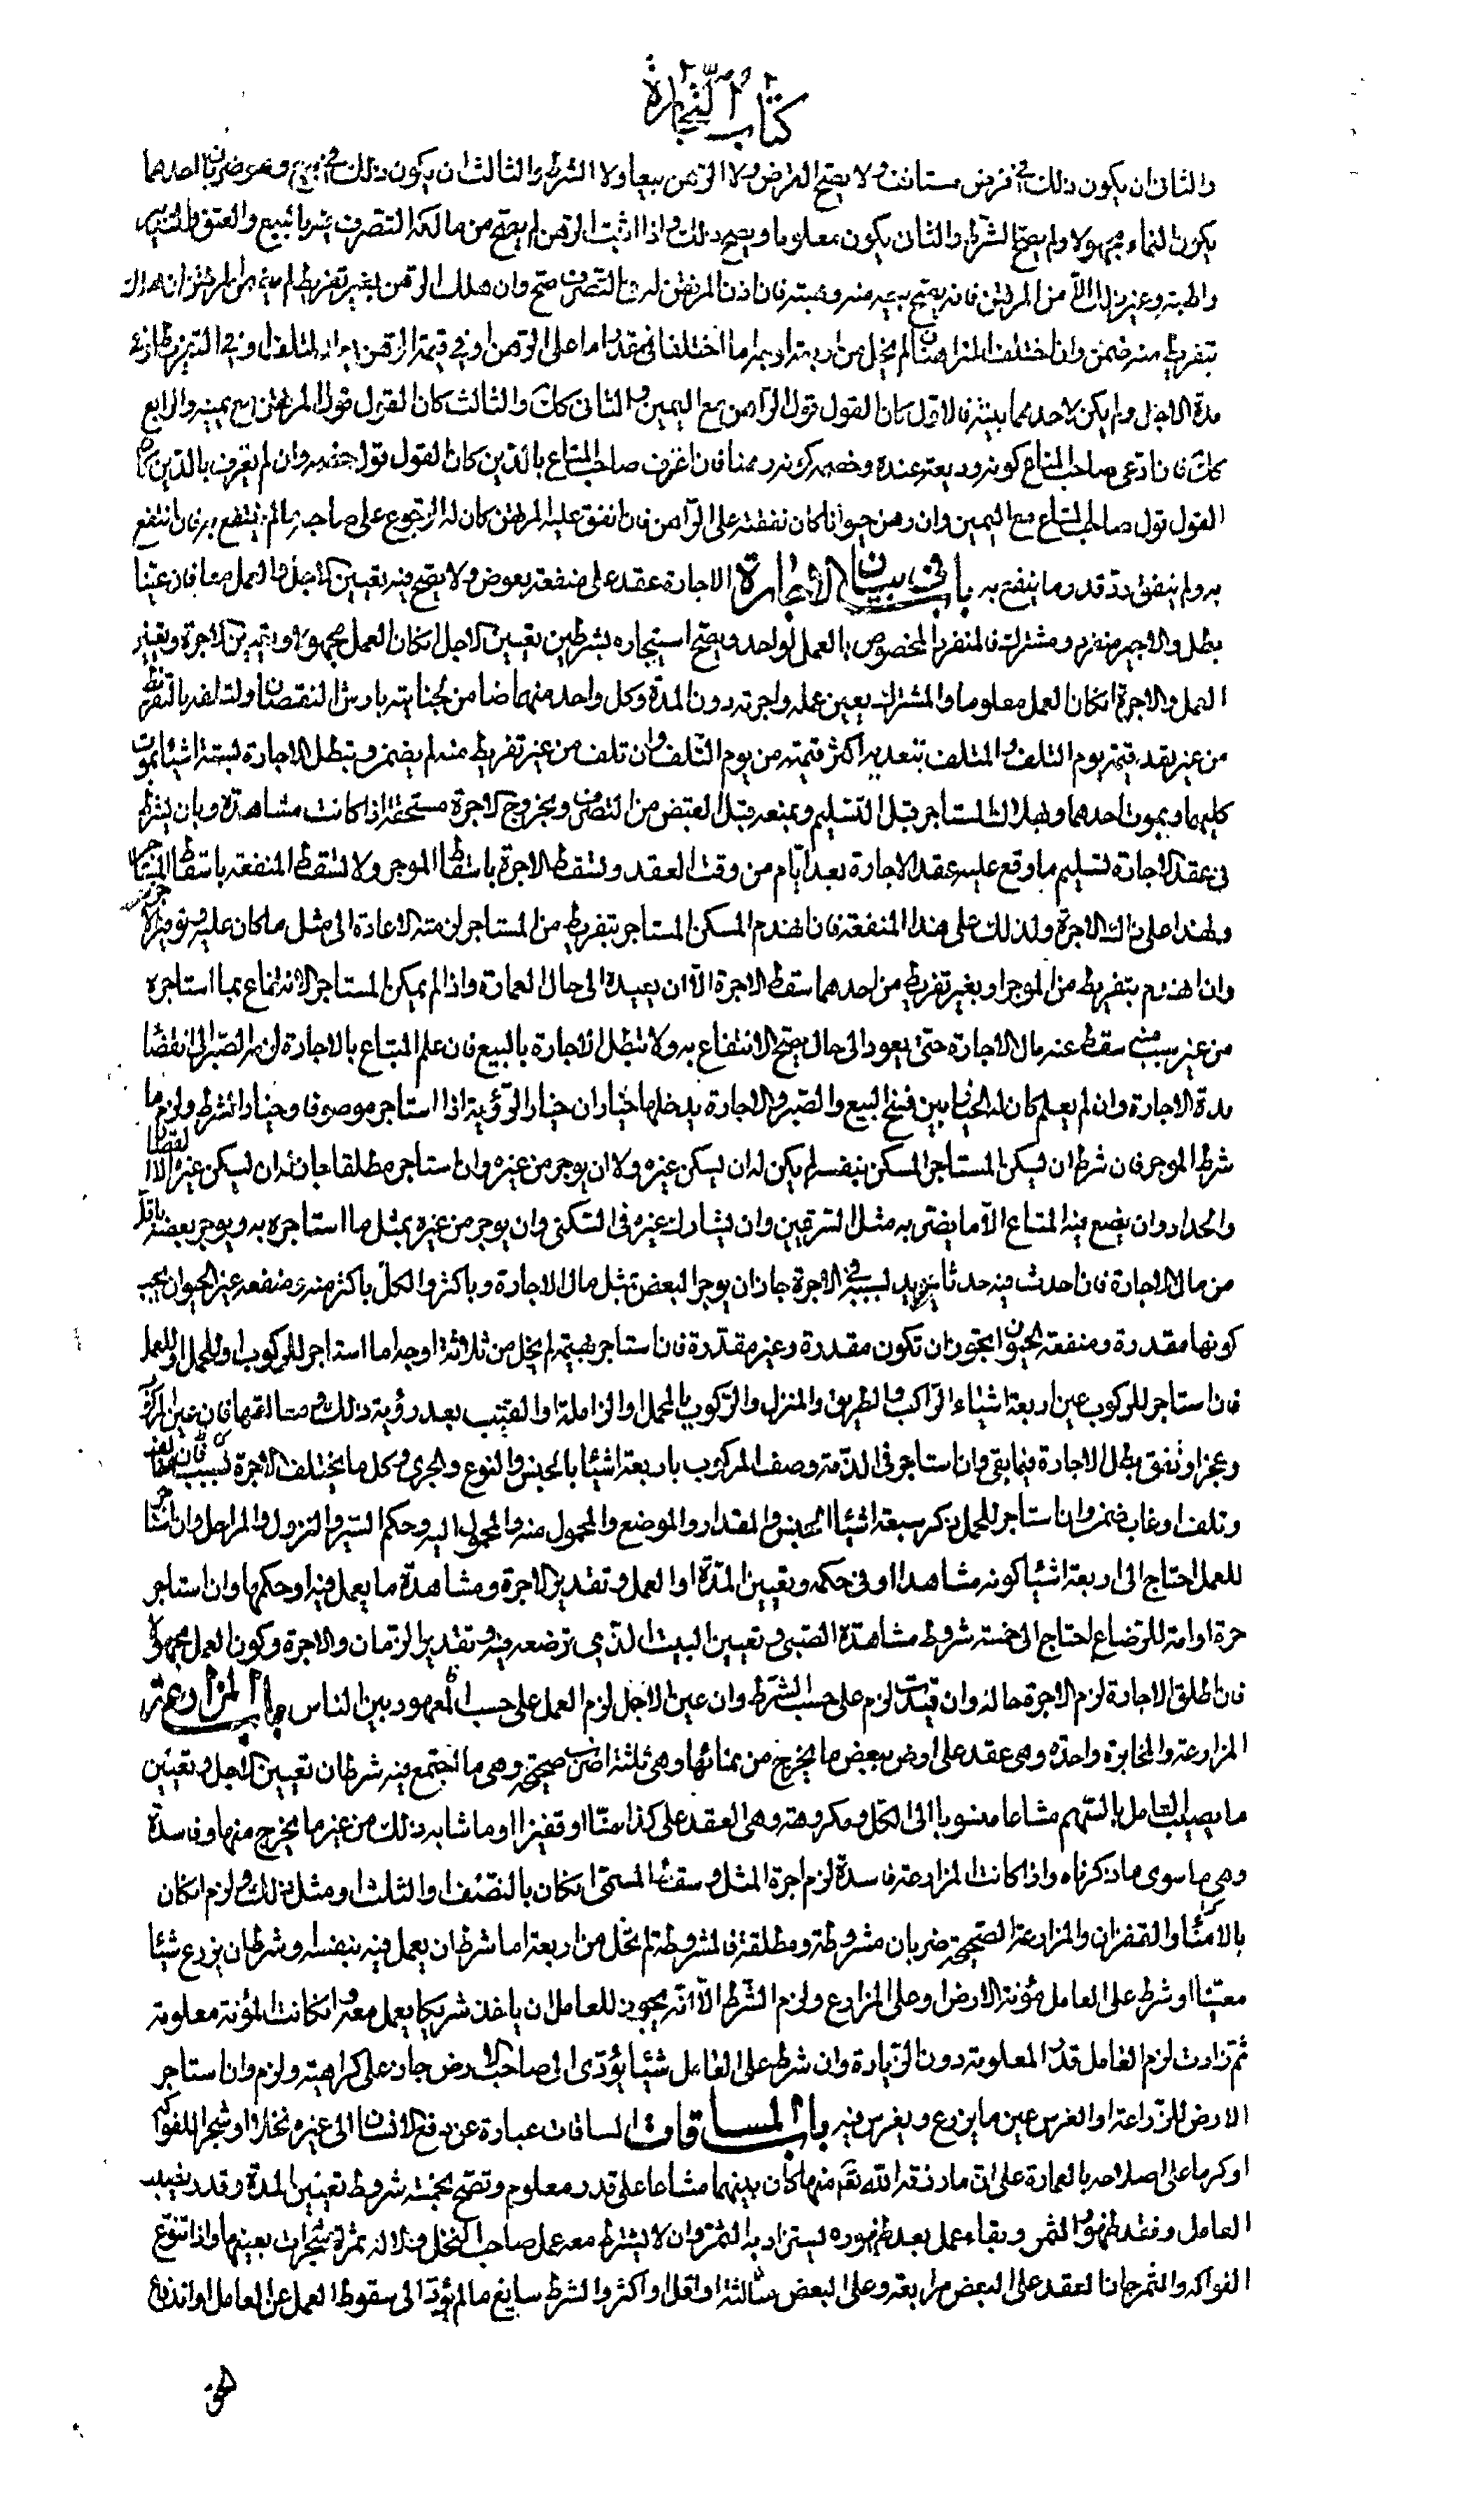 كتاب التجارة
والثانى ان يكون ذلك فى قرض مستانف ولا يصح القرض ولا الرهن بيعا ولا الشرط والثالث ان يكون ذلك فى بيع وهو ضربان احدهما
يكون النماء مجهولا ولم يصح الشرط والثانى يكون معلوما ويصح ذلك واذا ثبت الرهن لم يصح من مالكه التصرف فيه بالبيع والعتق والتدبير
والهبة وغير ذلك الا من المرتهن فانه يصح بيعه منه وهبته فان اذن المرتهن له فى التصرف صح وان هلك الرهن بغير تفريط لم يضمن المرتهن ان هلك
بتفريط منه ضمن وان اختلف المتراهنان لم يخل من اربعة اوجه اما اختلفا فى مقدار ما على الرهن او فى قيمة الرهن بعد التلف او فى التفريط او فى
مدة الاجل ولم يكن لاحدهما بينة فالاول كان القول قول الراهن مع اليمين والثانى كك والثالث كان القول قول المرتهن مع يمينه والرابع
كك فان ادعى صاحب المتاع كونه وديعة عنده وخصمه كونه رهنا فان اعترف صاحب المتاع بالدين كان القول قول خصمه وان لم يعترف بالدين كان
القول قول صاحب المتاع مع اليمين وان رهن حيوانا كان نفقته على الراهن فان انفق عليه المرتهن كان له الرجوع على صاحبه ما لم ينتفع به فان انتفع
به ولم ينفق رد قدر ما انتفع به باب فى بيان الاجارة الاجارة عقد على منفعة بعوض ولا يصح فيه تعيين الاجل والعمل معا فان عينا
بطل والاجير منفرد ومشترك فالمنفرد المخصوص بالعمل لواحد ويصح استيجاره بشرطين تعيين الاجل ان كان العمل مجهولا وتعيين الاجرة وتعيين
العمل والاجرة ان كان العمل معلوما والمشترك يعين عمله واجرته دون المدة وكل واحد منهما ضامن لجنايته بارش النقصان ولتالفه بالتفريط
من غير تعد قيمته يوم التلف والمتلف بتعديه اكثر قيمته من يوم التلف وان تلف من غير تفريط منه لم يضمن وتبطل الاجارة لستة اشياء بموت
كليهما وبموت احدهما وبهلاك المستاجر قبل التسليم وبمنعه قبل القبض من التصرف وبخروج الاجرة مستحقة اذا كانت مشاهدة وبان يشترط
فى عقد الاجارة تسليم ما وقع عليه عقد الاجارة بعد ايام من وقت العقد وتسقط الاجرة باسقاط الموجر ولا تسقط المنفعة باسقاط المستاجر
ولهذا على ذلك الاجرة ولذلك على هذا المنفعة فان انهدم المسكن المستاجر بتفريط من المستاجر لزمته الاعادة الى مثل ما كان عليه وتوفير الاجرة
وان انهدم بتفريط من الموجر او بغير تفريط من احدهما سقط الاجرة الا ان يعيده الى حال العمارة واذا لم يمكن المستاجر الانتفاع بما استاجره
من غير سبب منه سقط عنه مال الاجارة حتى يعود الى حال يصح الانتفاع به ولا تبطل الاجارة بالبيع فان علم المبتاع بالاجارة لزمه الصبر الى انقضاء
مدة الاجارة وان لم يعلم كان له الخيار بين فسخ البيع والصبر والاجارة يدخلها خياران خيار الرؤية اذا استاجر موصوفا وخيار الشرط ولزم ما
شرط الموجر فان شرط ان يسكن المستاجر المسكن بنفسه لم يكن له ان يسكن غيره ولا ان يوجر من غيره وان استاجر مطلقا جاز له ان يسكن غيره الا القصار
والحداد وان يضع فيه المتاع الا ما يضر به مثل السرقين وان يشارك غيره فى السكنى وان يوجر من غيره بمثل ما استاجره به ويوجر بعضه باقل
من مال الاجارة فان احدث فيه حدثا يزيد بسببه فى الاجرة جاز ان يوجر البعض بمثل مال الاجارة وباكثر والكل باكثر منه ومنفعة غير الحيوان يجب
كونها مقدرة ومنفعة الحيوان يجوز ان تكون مقدرة وغير مقدرة فان استاجر بهيمة لم يخل من ثلاثة اوجه اما استاجر للركوب او للحمل او للعمل
فان استاجر للركوب عين اربعة اشياء الراكب والطريق والمنزل والركوب بالمحمل او الزاملة او القتب بعد رؤية ذلك او صفاتها فان عين المركوب
وعجز او نفق بطل الاجارة فيما بقى وان استاجر فى الذمة وصف المركوب باربعة اشيا بالجنس والنوع والجرى وكل ما يختلف الاجرة بسببه فان
وتلف او غاب ضمن وان استاجر للحمل ذكر سبعة اشيا الجنس والمقدار والموضع والمحمول منه والمحمول اليه وحكم السير والنزول والمراحل وان استاجر
للعمل احتاج الى اربعة اشيا كونه مشاهدا او فى حكمه وتعيين المدة او العمل وتقدير الاجرة ومشاهدة ما يعمل فيه او حكمها وان استاجر
حرة او امة للرضاع احتاج الى خمسة شروط مشاهدة الصبى وتعيين البيت الذى ترضعه فيه وتقدير الزمان والاجرة وكون العمل مجهولا
فان اطلق الاجارة لزم الاجرة حالة وان قيدت لزم على حسب الشرط وان عين الاجل لزم العمل على حسب المعهود بين الناس باب المزارعة
المزارعة والمخابرة واحدة وهى عقد على ارض ببعض ما يخرج من نمائها وهى ثلثة اضرب صحيحة وهى ما تجتمع فيه شرطان تعيين الاجل وتعيين
ما يصيب العامل بالسهم مشاعا منسوبا الى الكل ومكروهة وهى العقد على كذا منّا او قفيزا او ما شابه ذلك من غير ما يخرج منها وفاسدة
وهى ما سوى ما ذكرناه واذا كانت المزارعة فاسدة لزم اجرة المثل وسقط المسمى ان كان بالنصف او الثلث او مثل ذلك ولزم ان كان
بالامناء والقفزان والمزارعة الصحيحة ضربان مشروطة ومطلقة فالمشروطة لم تخل من اربعة اما شرط ان يعمل فيه بنفسه وشرط ان يزرع شيئا
معينا او شرط على العامل مؤنة الارض او على المزارع ولزم الشرط الا انه يجوز للعامل ان ياخذ شريكا يعمل معه وان كانت المؤنة معلومة
ثم زادت لزم العامل قدر المعلومة دون الزيادة وان شرط على العامل شيئا يؤدى الى صاحب الارض جاز على كراهية ولزم وان استاجر
الارض للزراعة او الغرس عين ما يزرع ويغرس فيه باب المساقات المساقات عبارة عن دفع الانسان الى غيره نخلا او شجر الفواكه
او كرما على اصلاحه بالعمارة على ان ما رزقه الله تعم منها كان بينهما مشاعا على قدر معلوم وتصح بخمسة شروط تعيين المدة وقدر نصيب
العامل وفقد ظهور الثمر وبقاء عمل بعد ظهوره ليستزاد به الثمر وان لا يشترط معه عمل صاحب النخل ولا له ثمرة شجرات بعينها واذا تنوع
الفواكه والثمر جاز العقد على البعض مرابعة وعلى البعض مثالثة او اقل او اكثر والشرط سايغ ما لم يؤد الى سقوط العمل عن العامل او